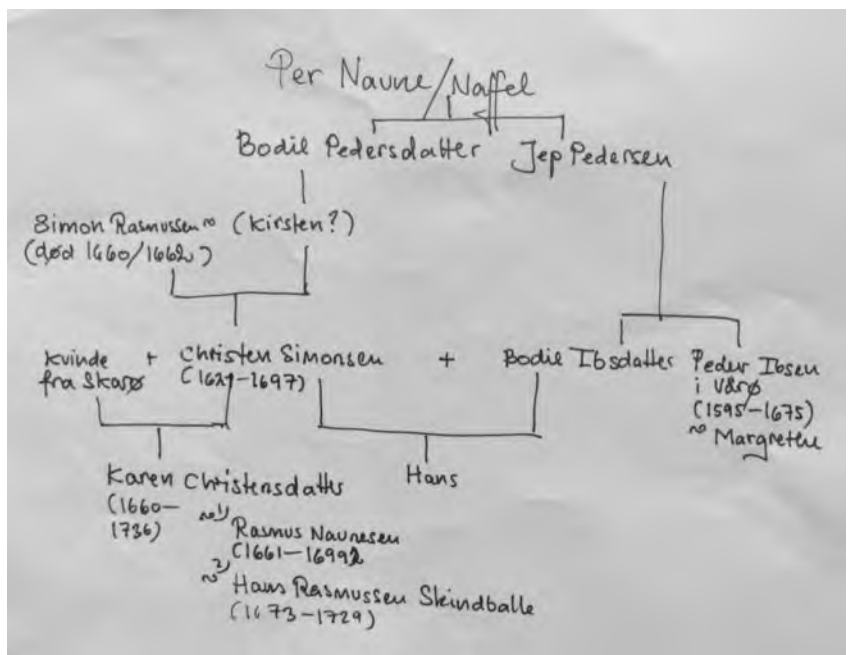 Per Navne/Naffel
Bodil Pedersdatter Jep Pedersen
Simon Rasmussen ~ (Kirsten?)
(død 1660/1662)
Kvinde + Christen Simonsen + Bodil Ibsdatter Peder Ibsen
fra Skarø (1621-1697) i Vårø
(1595-1675)
~ Margrethe
Karen Christensdatter Hans
(1660-
1736) ~1) Rasmus Navnesen
(1661-1699
~2) Hans Rasmussen Skindballe
(1673-1729)